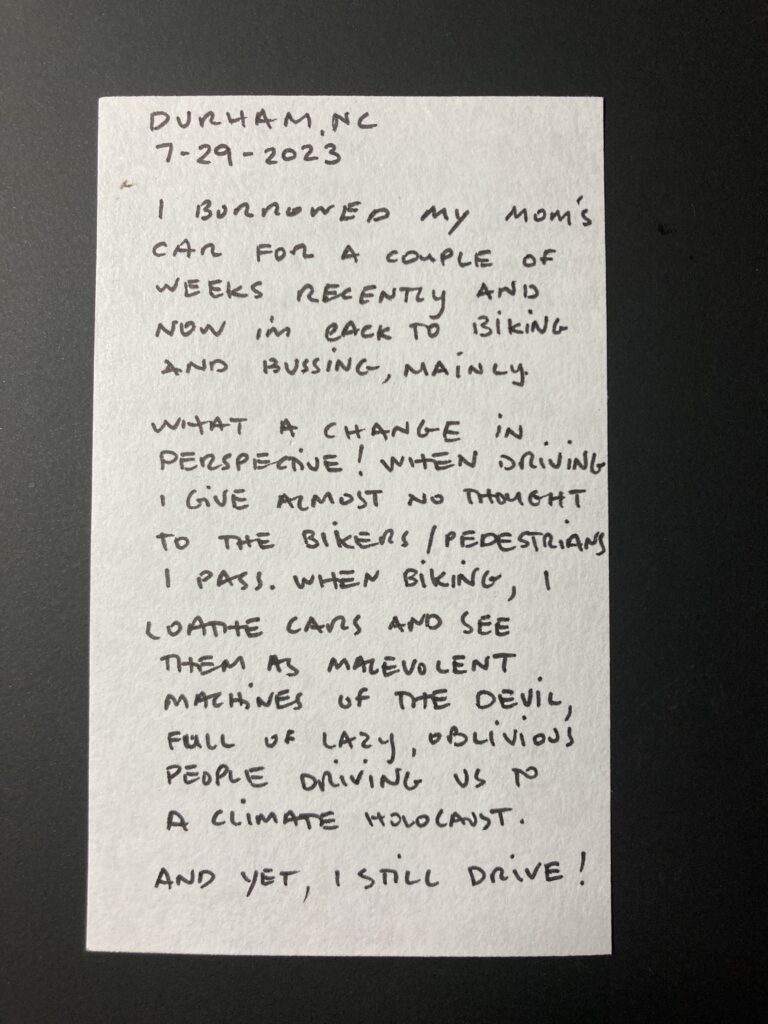 DURHAM, NC
7-29-2023
I BORROWED MY MOM'S
CAR FOR A COUPLE OF
WEEKS RECENTLY AND
NOW I'M BACK TO BIKING
AND BUSSING, MAINLY.
WHAT A CHANGE IN
PERSPECTIVE! WHEN DRIVING
I GIVE ALMOST NO THOUGHT
TO THE BIKERS/PEDESTRIANS
I PASS. WHEN BIKING, I
LOATHE CARS AND SEE
THEM AS MALEVOLENT
MACHINES OF THE DEVIL,
FULL OF LAZY, OBLIVIOUS
PEOPLE DRIVING US TO
A CLIMATE HOLOCAUST.
AND YET, I STILL DRIVE!